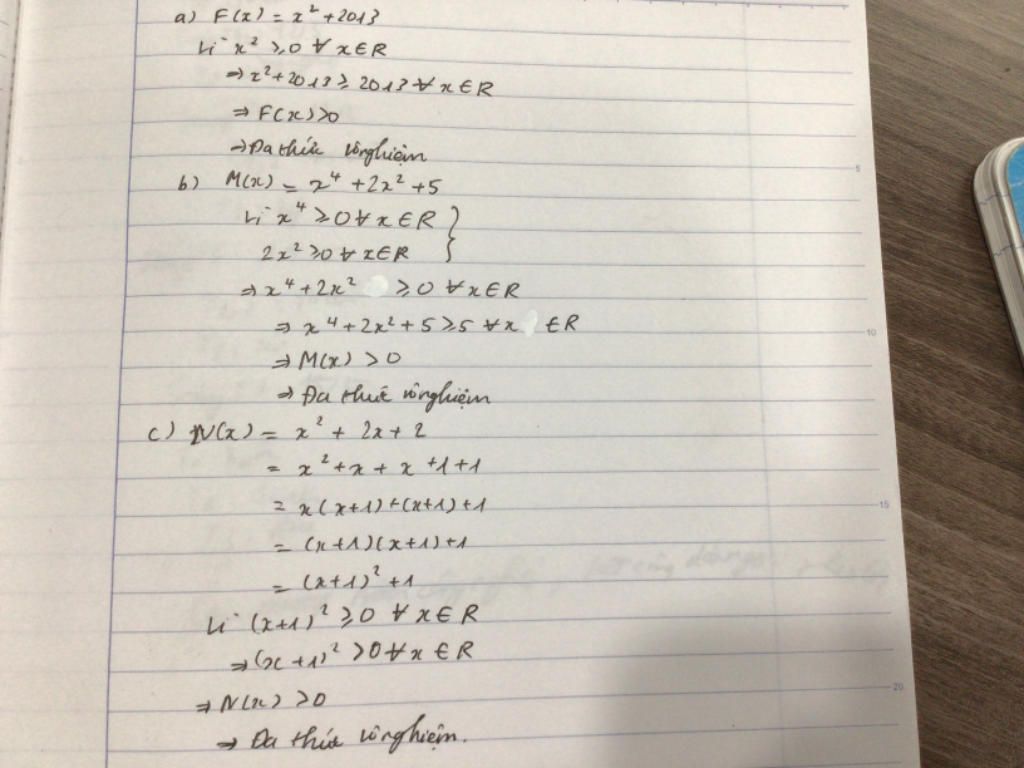 a) F(x) = x² + 2013
Vì x² ≥ 0 ∀ x ∈ R
⇒ x² + 2013 ≥ 2013 ∀ x ∈ R
⇒ F(x) > 0
⇒ Đa thức vô nghiệm
b) M(x) = x⁴ + 2x² + 5
Vì x⁴ ≥ 0 ∀ x ∈ R }
2x² ≥ 0 ∀ x ∈ R }
⇒ x⁴ + 2x² ≥ 0 ∀ x ∈ R
⇒ x⁴ + 2x² + 5 ≥ 5 ∀ x ∈ R
⇒ M(x) > 0
⇒ Đa thức vô nghiệm
c) N(x) = x² + 2x + 2
= x² + x + x + 1 + 1
= x(x+1) + (x+1) + 1
= (x+1)(x+1) + 1
= (x+1)² + 1
Vì (x+1)² ≥ 0 ∀ x ∈ R
⇒ (x+1)² > 0 ∀ x ∈ R
⇒ N(x) > 0
⇒ Đa thức vô nghiệm.
5
10
15
20